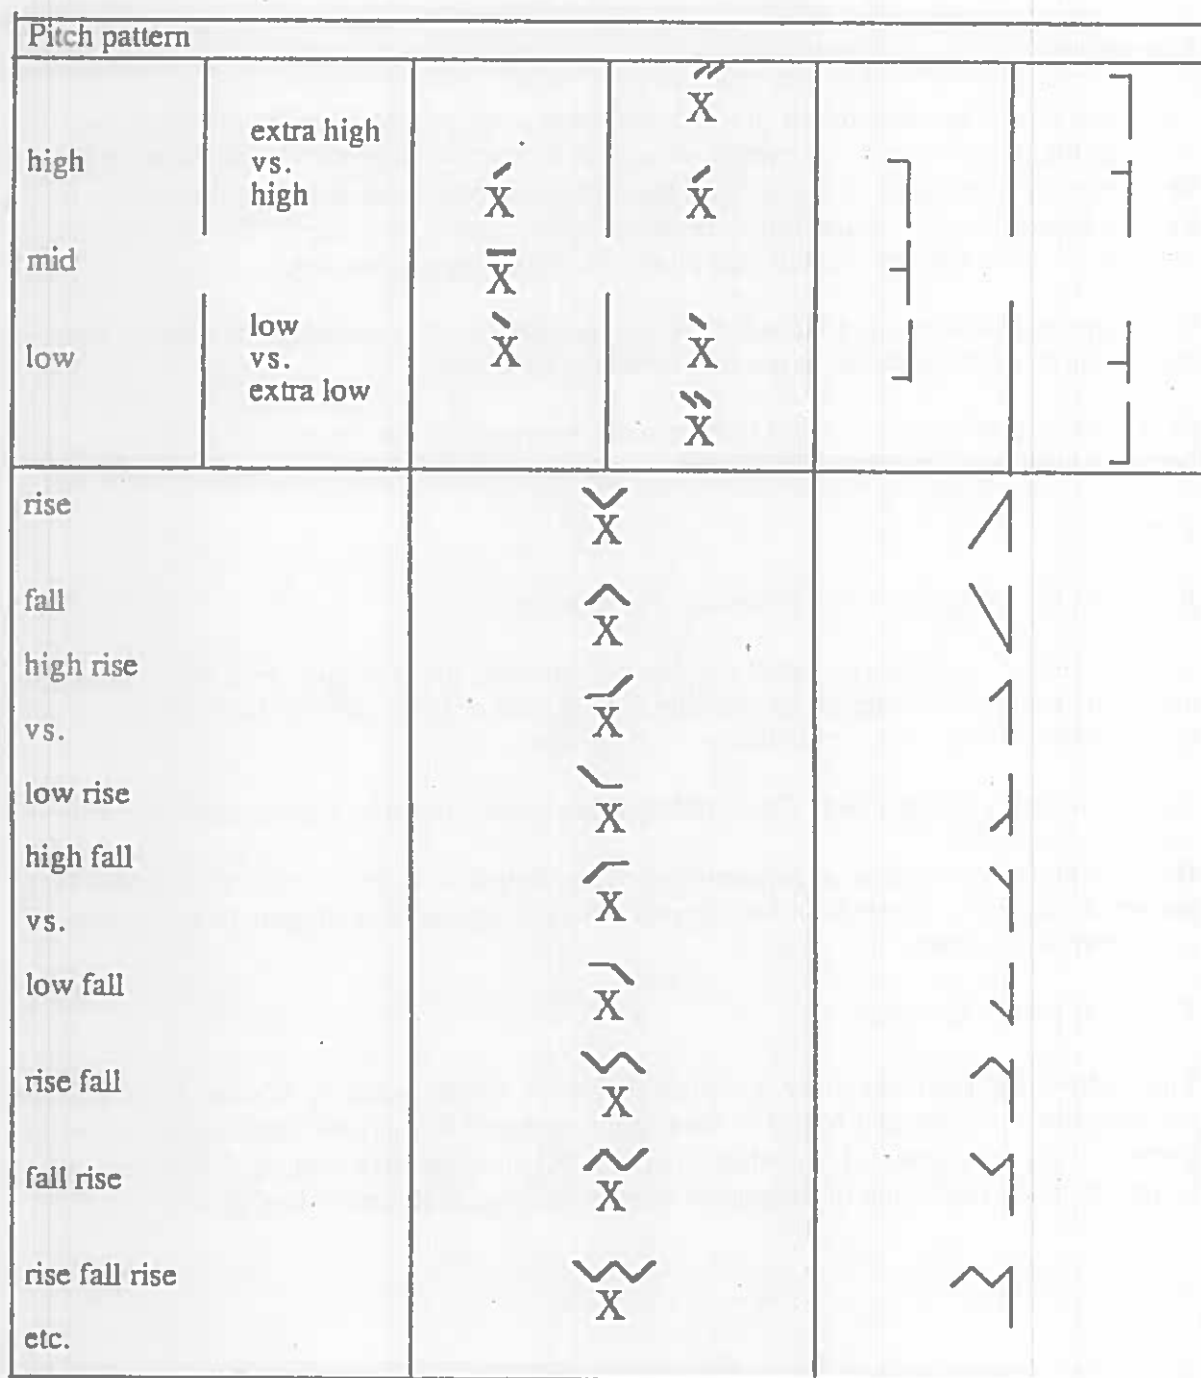 Pitch pattern
X̋
extra high
high vs.
high X́ X́ ˦
mid X̄ ˧
low X̀ X̀ ˨
low vs.
extra low
X̏ ˩
rise X̌ ˩˥
fall X̂ ˥˩
high rise X᷄ ˦˥
vs.
low rise X᷅ ˩˨
high fall X᷇ ˥˦
vs.
low fall X᷆ ˨˩
rise fall X
fall rise X
rise fall rise X
etc.